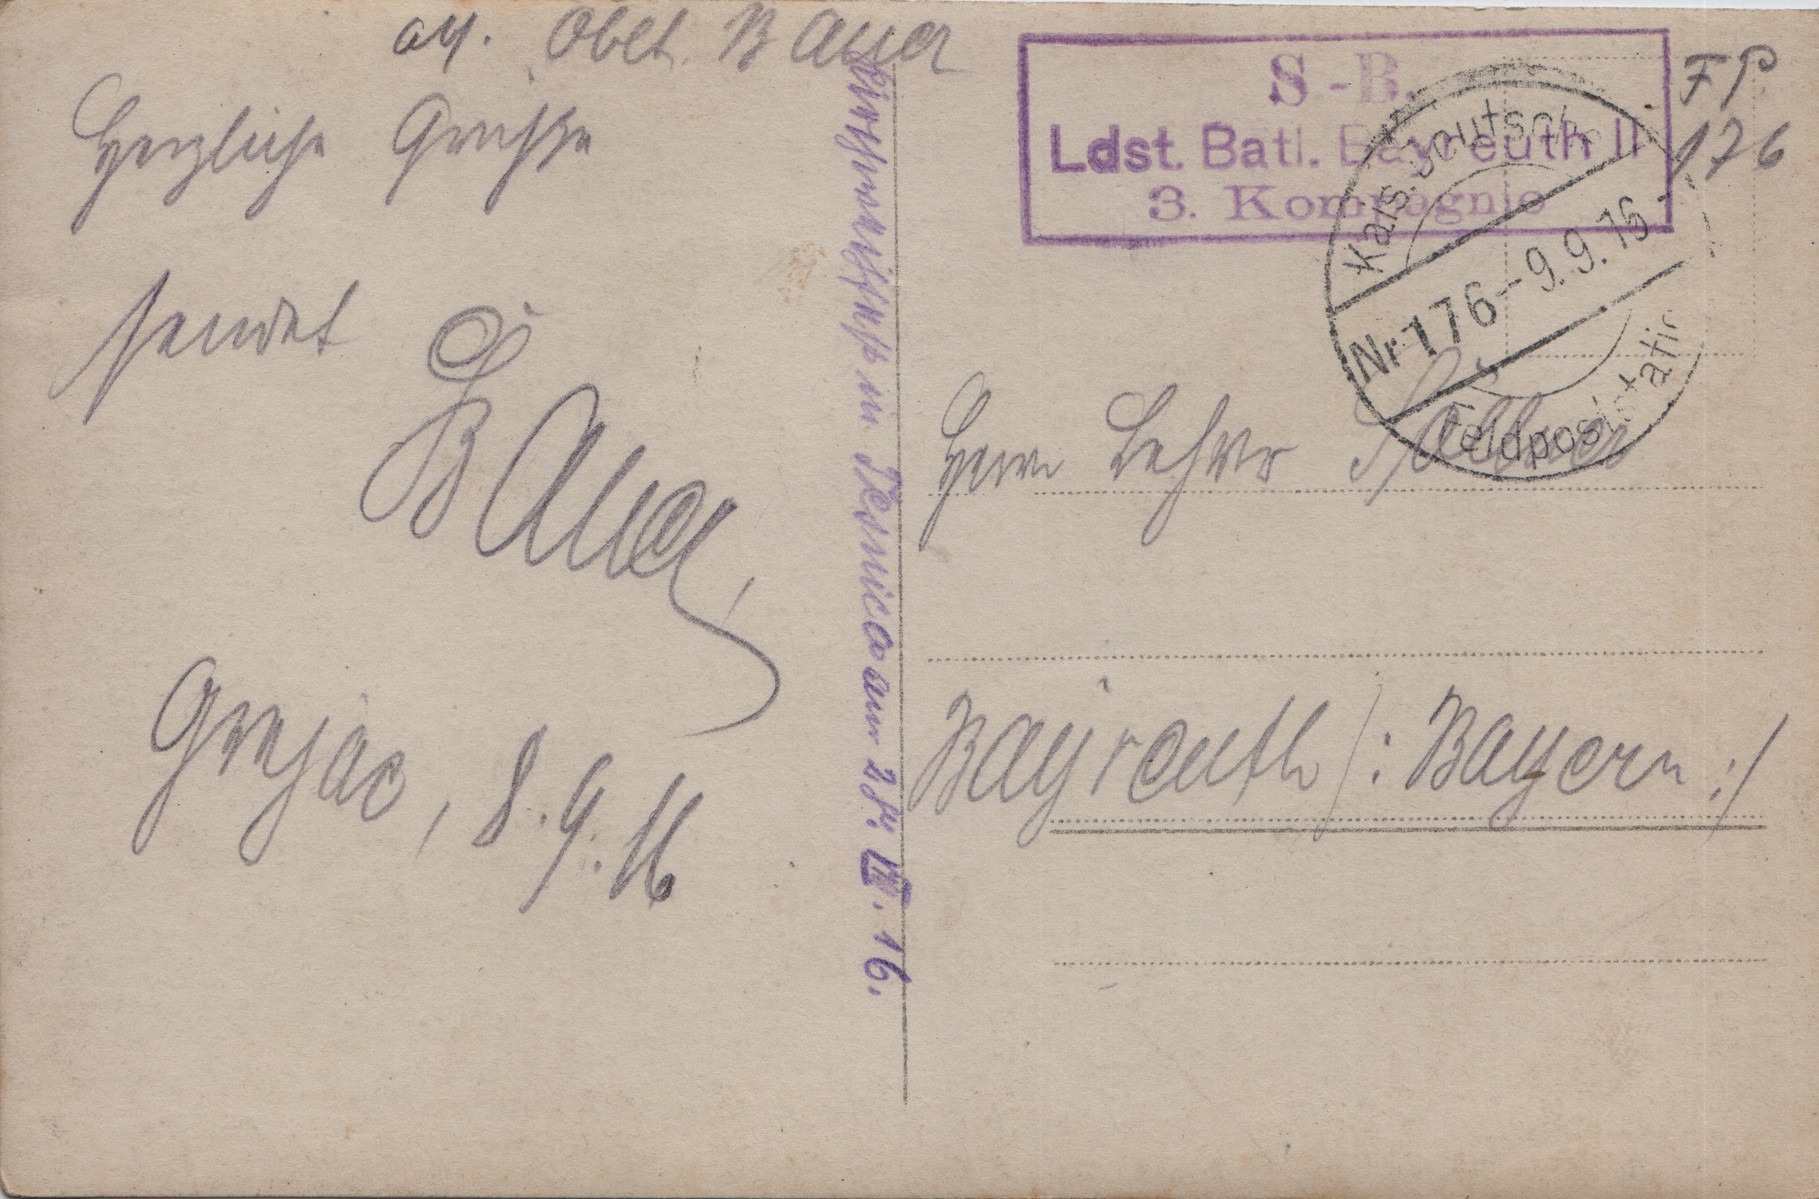 Obet. Bauer
Herzliche Grüße
sendet
Bauer
Grujac, 8.9.16
in am 28. VIII. 16.
S.-B.
Ldst. Batl. Bayreuth II
3. Kompagnie
FP
176
Kais. Deutsche
Nr 176 - 9.9.16 -
Feldpoststation
Herrn Lehrer
Bayreuth /: Bayern :/